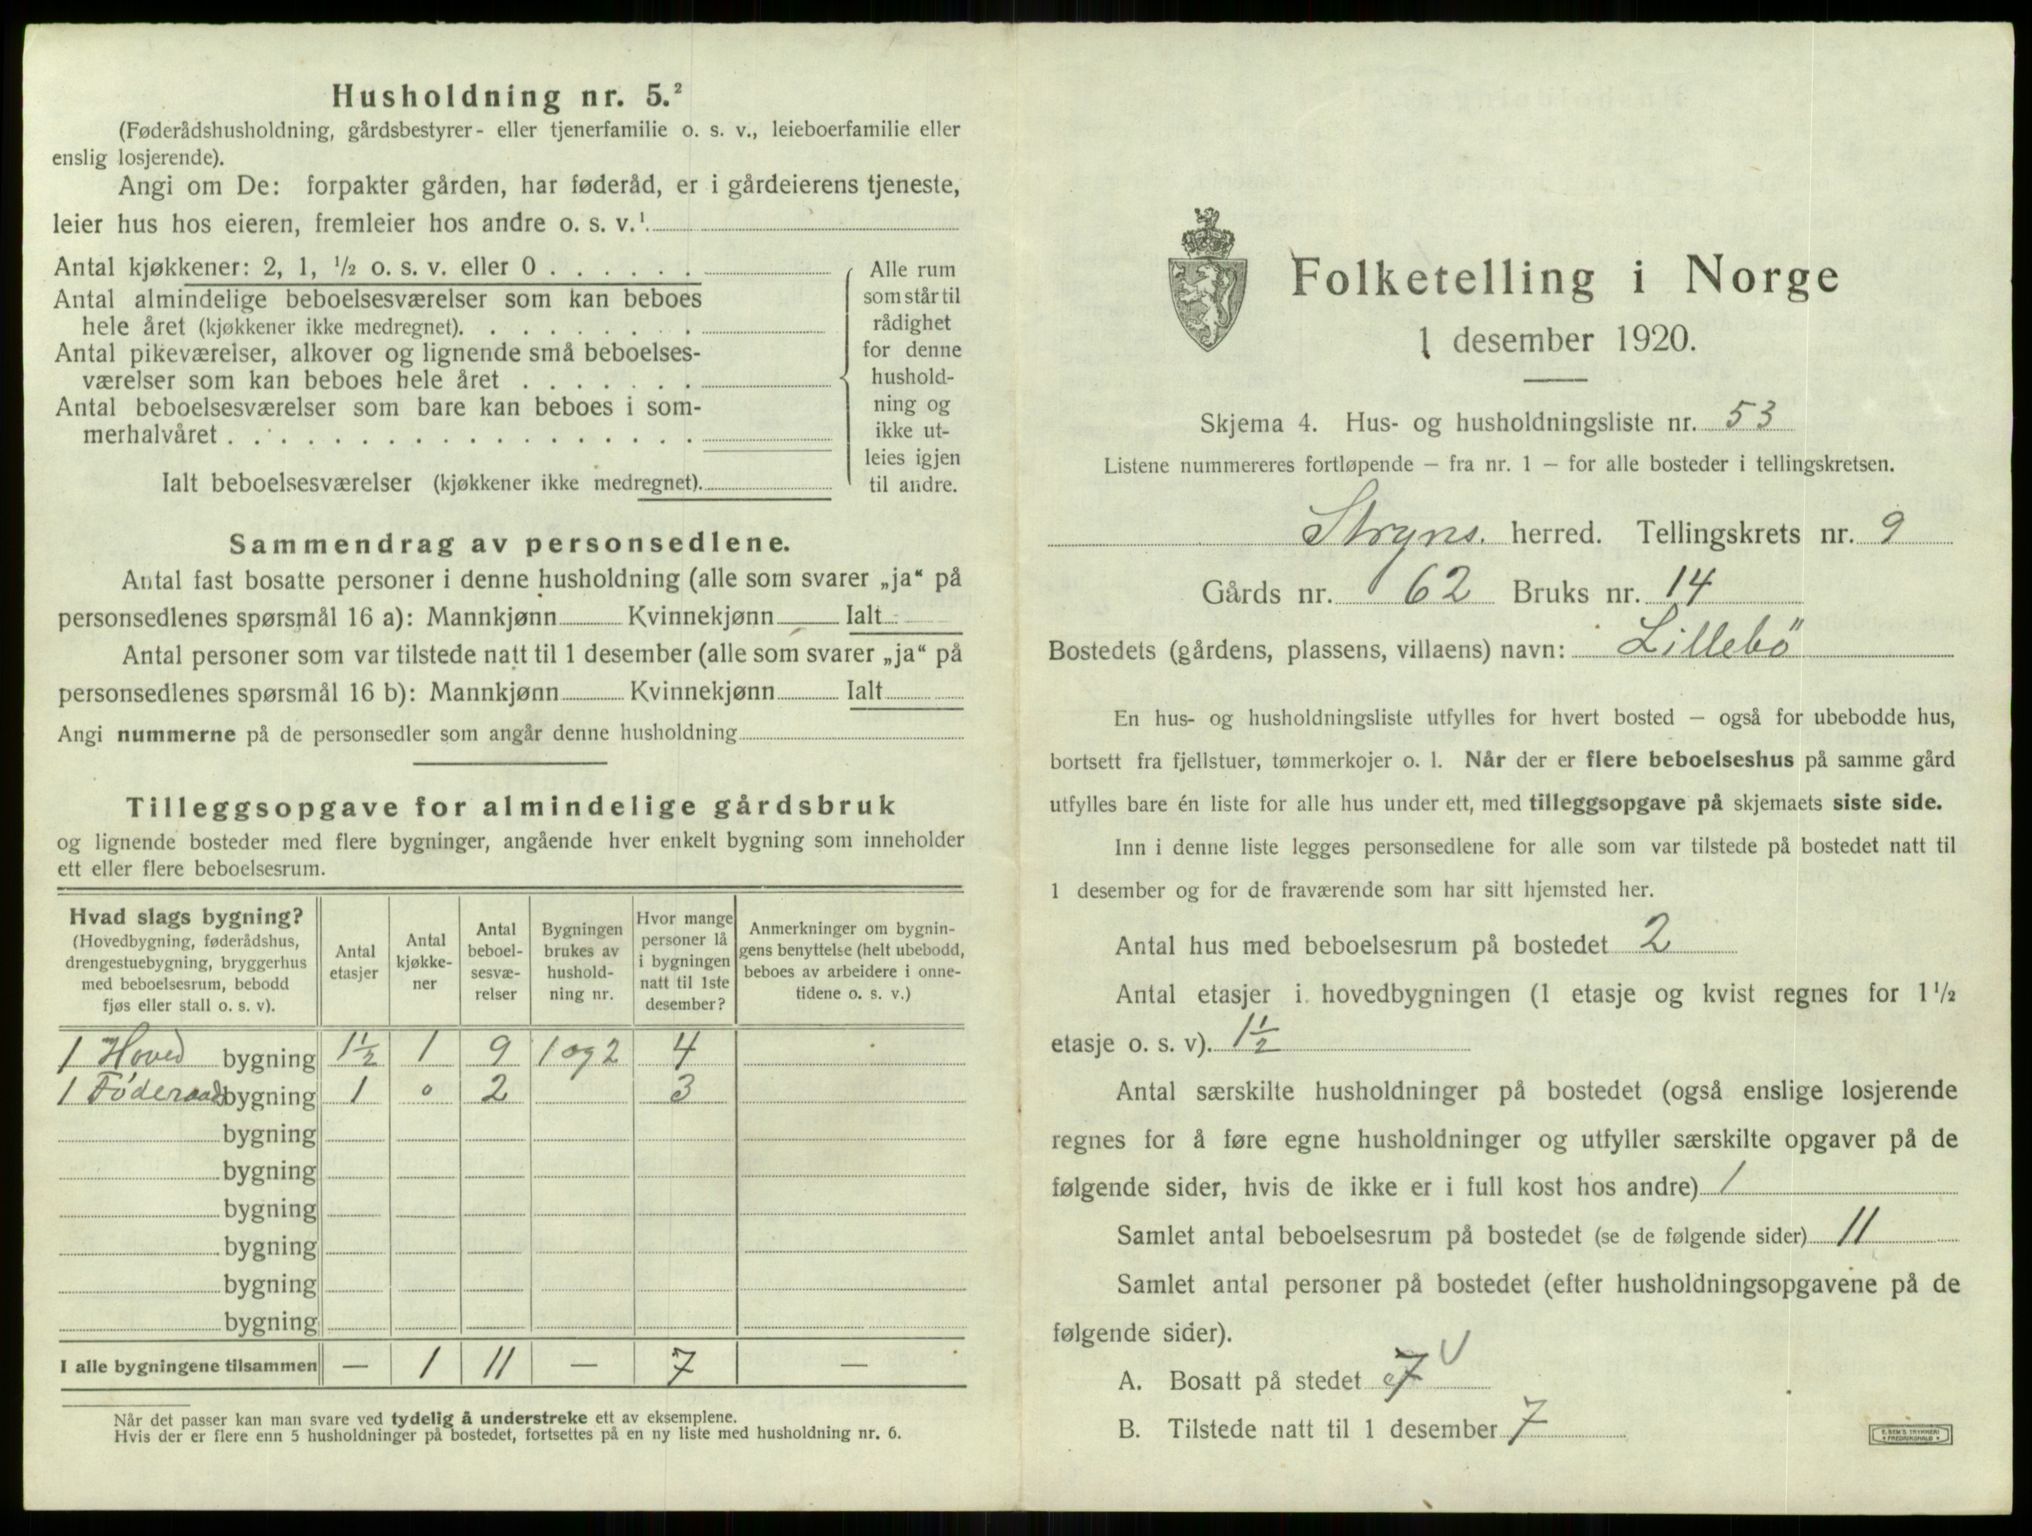 Husholdning nr. 5.²
(Føderådshusholdning, gårdsbestyrer- eller tjenerfamilie o. s. v., leieboerfamilie eller
enslig losjerende).
Angi om De: forpakter gården, har føderåd, er i gårdeierens tjeneste,
leier hus hos eieren, fremleier hos andre o. s. v.¹
Antal kjøkkener: 2, 1, ½ o. s. v. eller 0 . . . . . .
Antal almindelige beboelsesværelser som kan beboes
hele året (kjøkkener ikke medregnet). . . . . . . . .
Antal pikeværelser, alkover og lignende små beboelses-
værelser som kan beboes hele året . . . . . . .
Antal beboelsesværelser som bare kan beboes i som-
merhalvåret . . . . . . . . . . . . . . . . . .
Ialt beboelsesværelser (kjøkkener ikke medregnet).
Alle rum
som står til
rådighet
for denne
hushold-
ning og
ikke ut-
leies igjen
til andre.
Sammendrag av personsedlene.
Antal fast bosatte personer i denne husholdning (alle som svarer „ja“ på
personsedlenes spørsmål 16 a): Mannkjønn Kvinnekjønn Ialt
Antal personer som var tilstede natt til 1 desember (alle som svarer „ja“ på
personsedlenes spørsmål 16 b): Mannkjønn Kvinnekjønn Ialt
Angi nummerne på de personsedler som angår denne husholdning
Tilleggsopgave for almindelige gårdsbruk
og lignende bosteder med flere bygninger, angående hver enkelt bygning som inneholder
ett eller flere beboelsesrum.
Hvad slags bygning?
(Hovedbygning, føderådshus,
drengestuebygning, bryggerhus
med beboelsesrum, bebodd
fjøs eller stall o. s. v).
Antal
etasjer
Antal
kjøkke-
ner
Antal
beboel-
sesvæ-
relser
Bygningen
brukes av
hushold-
ning nr.
Hvor mange
personer lå
i bygningen
natt til 1ste
desember?
Anmerkninger om bygnin-
gens benyttelse (helt ubebodd,
beboes av arbeidere i onne-
tidene o. s. v.)
1 Hoved bygning 1½ 1 9 1 og 2 4
1 Föderaads bygning 1 0 2 3
bygning
bygning
bygning
bygning
bygning
bygning
I alle bygningene tilsammen — 1 11 — 7 —
Når det passer kan man svare ved tydelig å understreke ett av eksemplene.
Hvis der er flere enn 5 husholdninger på bostedet, fortsettes på en ny liste med husholdning nr. 6.
Folketelling i Norge
1 desember 1920.
Skjema 4. Hus- og husholdningsliste nr. 53
Listene nummereres fortløpende — fra nr. 1 — for alle bosteder i tellingskretsen.
Stryns. herred. Tellingskrets nr. 9
Gårds nr. 62 Bruks nr. 14
Bostedets (gårdens, plassens, villaens) navn: Lillebö
En hus- og husholdningsliste utfylles for hvert bosted — også for ubebodde hus,
bortsett fra fjellstuer, tømmerkojer o. l. Når der er flere beboelseshus på samme gård
utfylles bare én liste for alle hus under ett, med tilleggsopgave på skjemaets siste side.
Inn i denne liste legges personsedlene for alle som var tilstede på bostedet natt til
1 desember og for de fraværende som har sitt hjemsted her.
Antal hus med beboelsesrum på bostedet 2
Antal etasjer i hovedbygningen (1 etasje og kvist regnes for 1½
etasje o. s. v). 1½
Antal særskilte husholdninger på bostedet (også enslige losjerende
regnes for å føre egne husholdninger og utfyller særskilte opgaver på de
følgende sider, hvis de ikke er i full kost hos andre) 1
Samlet antal beboelsesrum på bostedet (se de følgende sider) 11
Samlet antal personer på bostedet (efter husholdningsopgavene på de
følgende sider).
A. Bosatt på stedet 7 V
B. Tilstede natt til 1 desember 7
E. SEM'S TRYKKERI
FREDRIKSHALD